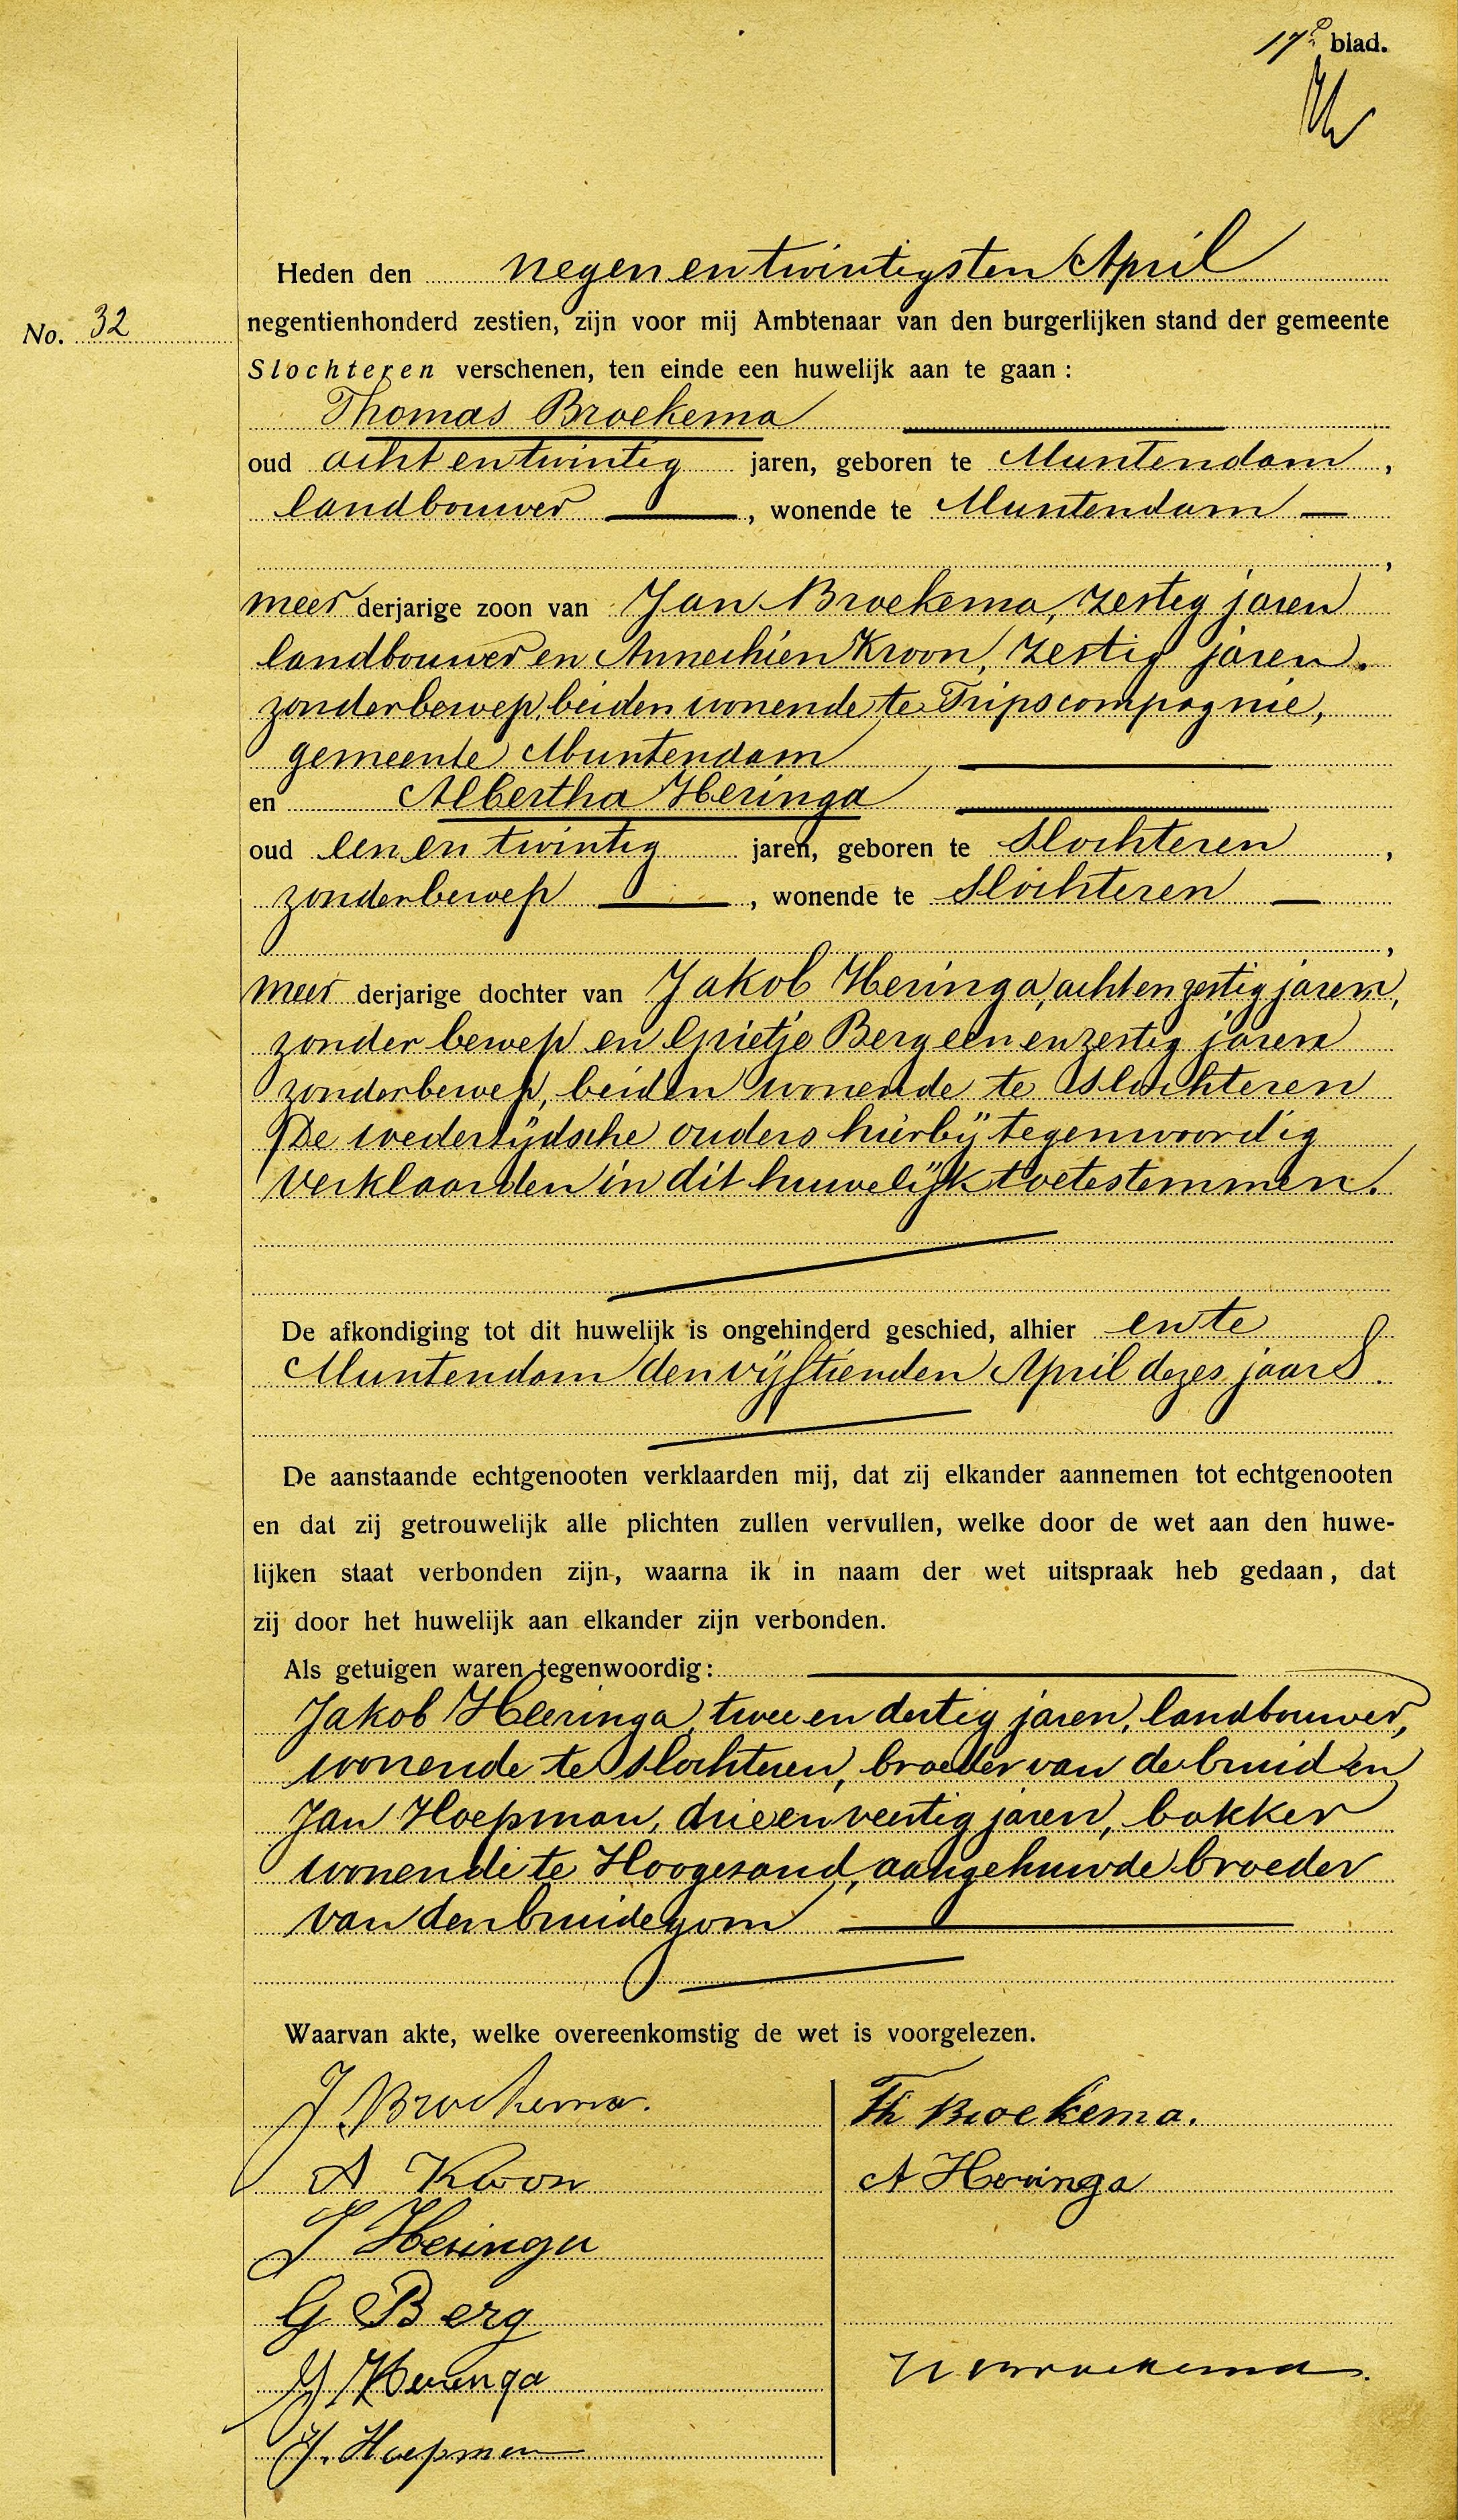 17e blad.
Heden den negenentwintigsten April
No. 32
negentienhonderd zestien, zijn voor mij Ambtenaar van den burgerlijken stand der gemeente
Slochteren verschenen, ten einde een huwelijk aan te gaan :
Thomas Broekema
oud achtentwintig jaren, geboren te Muntendam,
landbouwer, wonende te Muntendam
,
meerderjarige zoon van Jan Broekema, zestig jaren
landbouwer en Annechien Kroon, zestig jaren.
zonder beroep, beiden wonende te Tripscompagnie,
gemeente Muntendam
en Albertha Heringa
oud eenentwintig jaren, geboren te Slochteren,
zonder beroep, wonende te Slochteren
,
meerderjarige dochter van Jakob Heringa, achtenzestig jaren,
zonder beroep en Grietje Berg eenenzestig jaren
zonder beroep, beiden wonende te Slochteren
De wederzijdsche ouders hierbij tegenwoordig
verklaarden in dit huwelijk toetestemmen.
De afkondiging tot dit huwelijk is ongehinderd geschied, alhier en te
Muntendam den vijftienden April dezes jaars.
De aanstaande echtgenooten verklaarden mij, dat zij elkander aannemen tot echtgenooten
en dat zij getrouwelijk alle plichten zullen vervullen, welke door de wet aan den huwe-
lijken staat verbonden zijn, waarna ik in naam der wet uitspraak heb gedaan, dat
zij door het huwelijk aan elkander zijn verbonden.
Als getuigen waren tegenwoordig:
Jakob Heeringa, twee en dertig jaren, landbouwer,
wonende te Slochteren, broeder van de bruid en
Jan Hoepman, drieenveertig jaren, bakker
wonende te Hoogezand, aangehuwde broeder
van den bruidegom
Waarvan akte, welke overeenkomstig de wet is voorgelezen.
J Broekema.
Th Broekema.
A Kroon
A Heringa
J Heringa
G Berg
J Heeringa
J. Hoepman